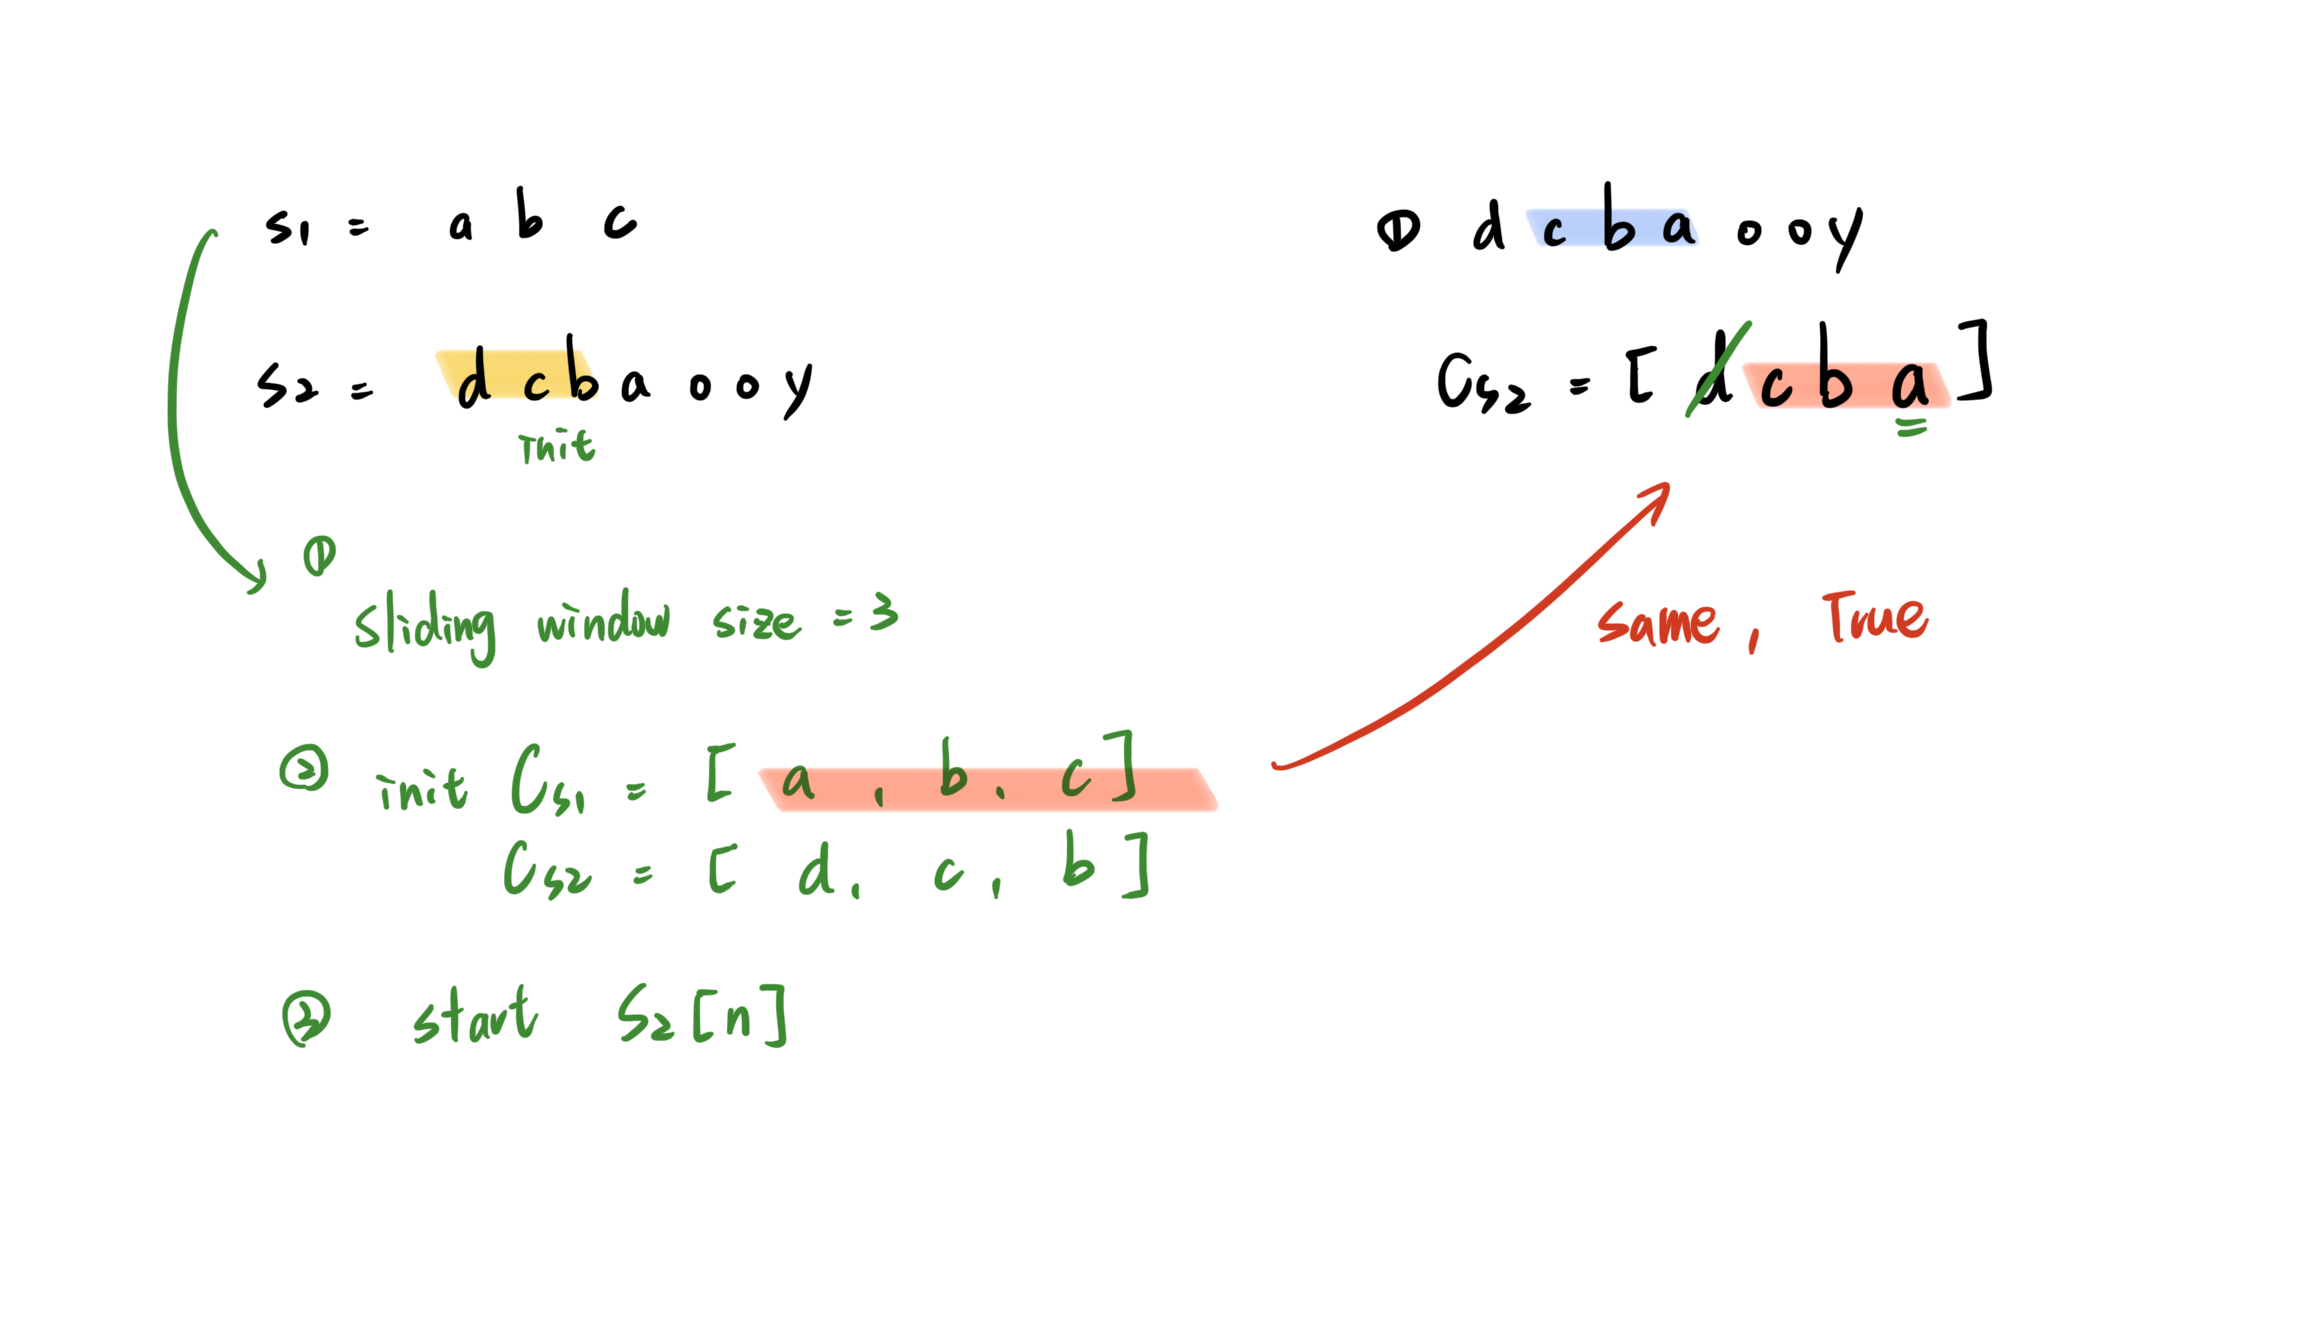 s1 = a b c
s2 = d c b a o o y
init
①
sliding window size = 3
② init Cs1 = [ a , b , c ]
Cs2 = [ d , c , b ]
③ start S2[n]
① d c b a o o y
Cs2 = [ d c b a ]
same , True